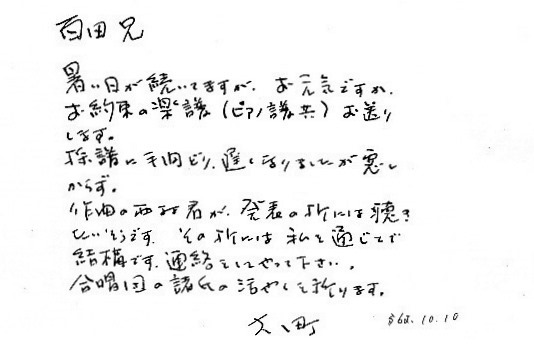 百田兄
暑い日が続いてますが、お元気ですか、
お約束の楽譜（ピアノ譜共）お送り
します。
採譜に手間どり、遅くなりましたが悪し
からず。
作曲の西村君が、発表の折には聴き
たいそうです。その折には私を通じてで
結構です、連絡をしてやって下さい。
合唱団の諸氏の活やくを祈ります。
大町
S62.10.10